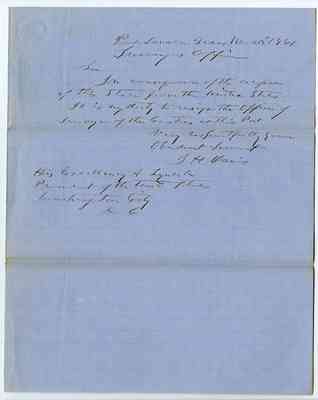 Port Lavaca Texas
Surveyor's Office
Sir
In consequence of the
of this State from the United States
It is my duty to resign the Office of
Surveyor of the Customs at this Port
Very respectfully your
Obedient Servant
S. H.
His Excellency A Lincoln
President of the United States
Washington City
D. C.